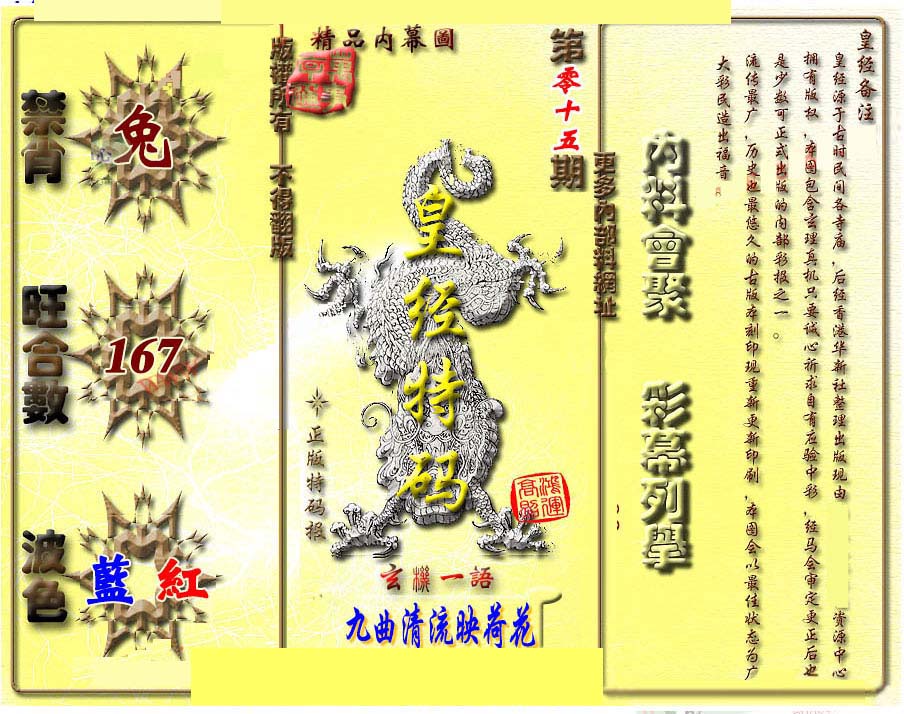 精品内幕圖
第零十五期
版權所有 不得翻版
更多內部料網址
禁肖
兔
旺合數
167
波色
藍 紅
皇经特码
正版特码报
鴻運高照
玄機一語
九曲清流映荷花
内料會聚
彩幕列學
皇经备注
皇经源于古时民间各寺庙,后经香港华新社整理出版现由 资源中心
拥有版权,本图包含玄理真机只要诚心祈求自有应验中彩,经马会审定更正后也
是少数可正式出版的内部彩报之一。
流传最广,历史也最悠久的古版本刻印现重新更新印刷,本图会以最佳状态为广
大彩民造出福音